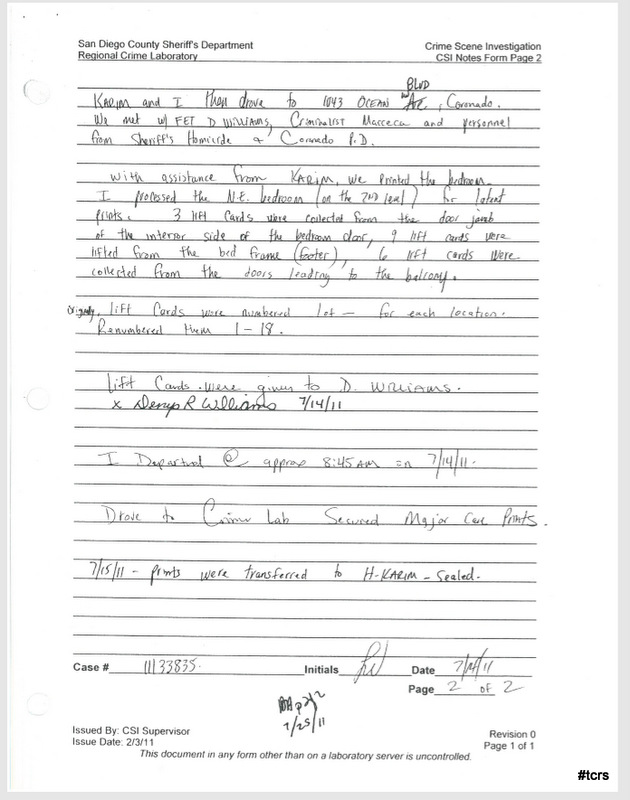 San Diego County Sheriff's Department
Regional Crime Laboratory
Crime Scene Investigation
CSI Notes Form Page 2
BLVD
KARIM and I then drove to 1043 OCEAN Ave, Coronado.
We met w/ FET D WILLIAMS, Criminalist Macceca and personnel
from Sheriff's Homicide & Coronado P.D.
With assistance from KARIM, we printed the bedroom.
I processed the N.E. bedroom (on the 2ND level) for latent
prints. 3 lift cards were collected from the door jamb
of the interior side of the bedroom door, 9 lift cards were
lifted from the bed frame (footer), 6 lift cards were
collected from the doors leading to the balcony.
Originally, lift cards were numbered 1 of — for each location.
Renumbered them 1-18.
Lift Cards were given to D. WILLIAMS.
x Denys R Williams 7/14/11
I Departed @ approx 8:45 AM on 7/14/11.
Drove to Crime Lab Secured Major Case Prints.
7/15/11 - prints were transferred to H-KARIM - Sealed.
Case # 11133835.
Initials
Date 7/14/11
Page 2 OF 2
7/25/11
Issued By: CSI Supervisor
Issue Date: 2/3/11
Revision 0
Page 1 of 1
This document in any form other than on a laboratory server is uncontrolled.
#tcrs